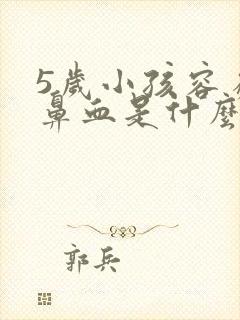 5歲小孩容
鼻血是什麼
郭兵